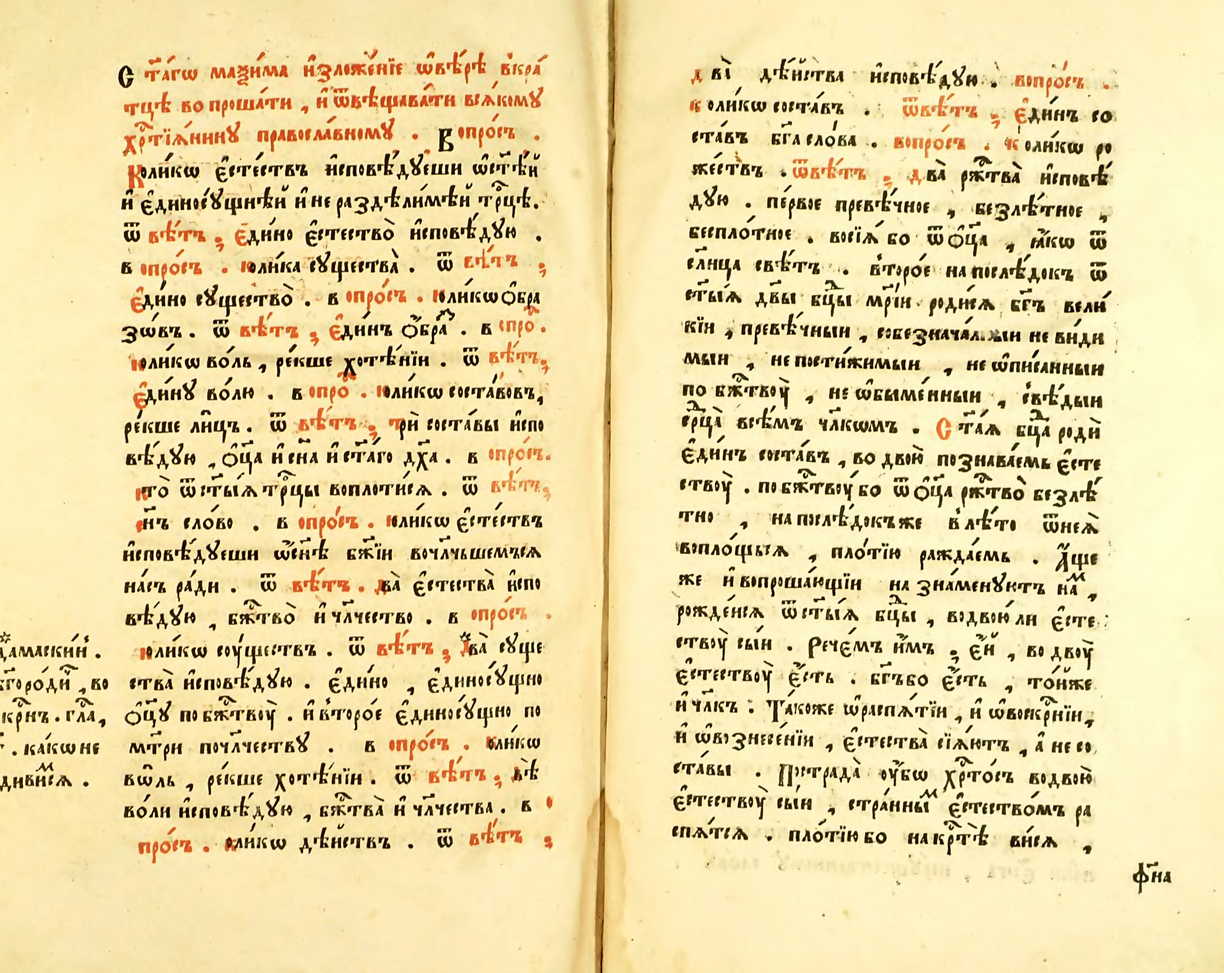 С та́гѡ маѯи́ма и҆зложе́нїе ѡ҆вѣ́рѣ вкра́
тцѣ вопроша́ти , и҆ ѿвѣщава́ти вся́кому
хрⷭ҇тїѧ́нинꙋ православному . Вопро́съ .
Ко́ликѡ є҆сте́ствъ и҆сповѣ́дꙋеши ѡ҆ст҃ѣ́й
и҆ є҆диносꙋ́щнѣй и҆ нераздѣли́мѣй трⷪ҇цѣ.
Ѿвѣ́тъ ; є҆ди́но є҆стество̀ и҆сповѣ́дꙋю .
вопро́съ . коли́ка сꙋщества̀ . ѿвѣ́тъ ;
є҆ди́но сꙋщество̀ . вопро́съ . коли́кѡ ѻ҆́бра
зѡвъ . ѿвѣ́тъ ; є҆ди́нъ ѻ҆́браⷥ . вопро́ⷭ .
коли́кѡ во́ль , ре́кше хотѣ́нїи . ѿвѣ́тъ ;
є҆ди́нꙋ во́лю . вопро́ⷭ . коли́кѡ соста́вовъ,
ре́кше ли́цъ . ѿвѣ́тъ ; трѝ соста́вы и҆спо
вѣ́дꙋю , ѻ҆ц҃а̀ и҆ сн҃а и҆ ст҃а́го дх҃а . вопро́съ.
кто̀ ѿст҃ы́ѧ трⷪ҇цы воплоти́сѧ . ѿвѣ́тъ;
сн҃ъ сло́во . вопро́съ . коли́кѡ є҆сте́ствъ
и҆сповѣ́дꙋеши ѡ҆сн҃ѣ бж҃їи вочл҃чьшемъсѧ
на́съ ра́ди . ѿвѣ́тъ . два̀ є҆стества̀ и҆спо
вѣ́дꙋю , бжⷭ҇тво̀ и҆ чл҃чество . вопро́съ .
коли́кѡ соу́ществъ . ѿвѣ́тъ ; * два̀ сꙋще
ства̀ и҆сповѣ́дꙋю . є҆ди́но , є҆диносꙋ́щно
ѻ҆ц҃ꙋ̀ побжⷭ҇твоꙋ̀ . и҆ второ́е є҆диносꙋ́щно по
мт҃ри почл҃честву . вопро́съ . коли́кѡ
вѡ́ль , ре́кше хотѣ́нїи . ѿвѣ́тъ ; двѣ̀
во́ли и҆сповѣ́дꙋю , бжⷭ҇тва̀ и҆ чл҃чества . во
про́съ . коли́кѡ дѣ́йствъ . ѿвѣ́тъ ;
*
дамаски́нъ .
какѡ не
диви́мсѧ .
два̀ дѣ́йства и҆сповѣ́дꙋю . вопро́съ .
коли́кѡ соста́въ . ѿвѣ́тъ ; є҆ди́нъ со
ста́въ бг҃а сло́ва . вопро́съ . коли́кѡ ро
же́ствъ . ѿвѣ́тъ ; два̀ ржⷭ҇тва̀ и҆сповѣ́
дꙋю . пе́рвое превѣ́чное , безлѣ́тное ,
бесплотное . восїѧ́ бо ѿ ѻ҆ц҃а̀ , ꙗ҆́кѡ ѿ
сл҃нца свѣ́тъ . второ́е напослѣ́докъ ѿ
ст҃ы́ѧ дв҃ы бцⷣы мр҃і́и роди́сѧ бг҃ъ вели́
кїи , превѣ́чныи , собезнача́л.ныи невиди
мыи , непостижи́мыи , неѡ҆пи́санныи
побжⷭ҇твоꙋ̀ , неѡ҆быме́нныи , свѣ́дыи
срⷣца̀ всѣ́мъ чл҃комъ . Ста́ѧ бцⷣа родѝ
є҆ди́нъ соста́въ , во двою̀ познава́емь є҆сте
ствоꙋ̀ . побжⷭ҇твоу́ бо ѿ ѻ҆ц҃а̀ ржⷭ҇тво̀ безлѣ́
тно , напослѣ́докъже влѣ́то ѿнеѧ̀
вопло́щьсѧ , пло́тїю ражда́емь . А҆́ще
же и҆ вопроша́ющїи назна́менꙋютъ на́ⷨ ,
рожде́йсѧ ѿст҃ы́ѧ бцⷣы , водвою́ ли є҆сте
ствоꙋ̀ сы́и . Рече́мъ и҆̀мъ ; є҆́й , водвоꙋ̀
є҆стествоꙋ̀ є҆́сть . бг҃ъ бо є҆́сть , то́йже
и҆ чл҃къ . Та́коже ѡ҆распѧ́тїи , и҆ ѡ҆воскрⷭ҇нїи,
и҆ ѡ҆вознесе́нїи , є҆стества̀ сїѧ́ютъ , а҆ несо
ста́вы . Пострада̀ ᲂу҆́бѡ хрⷭ҇то́съ водвою̀
є҆стествоꙋ̀ сы́и , стра́нныⷨ є҆стество́мъ ра
спѧ́тсѧ . пло́тїю бо накрⷭ҇тѣ̀ ви́сѧ ,
фн҃а